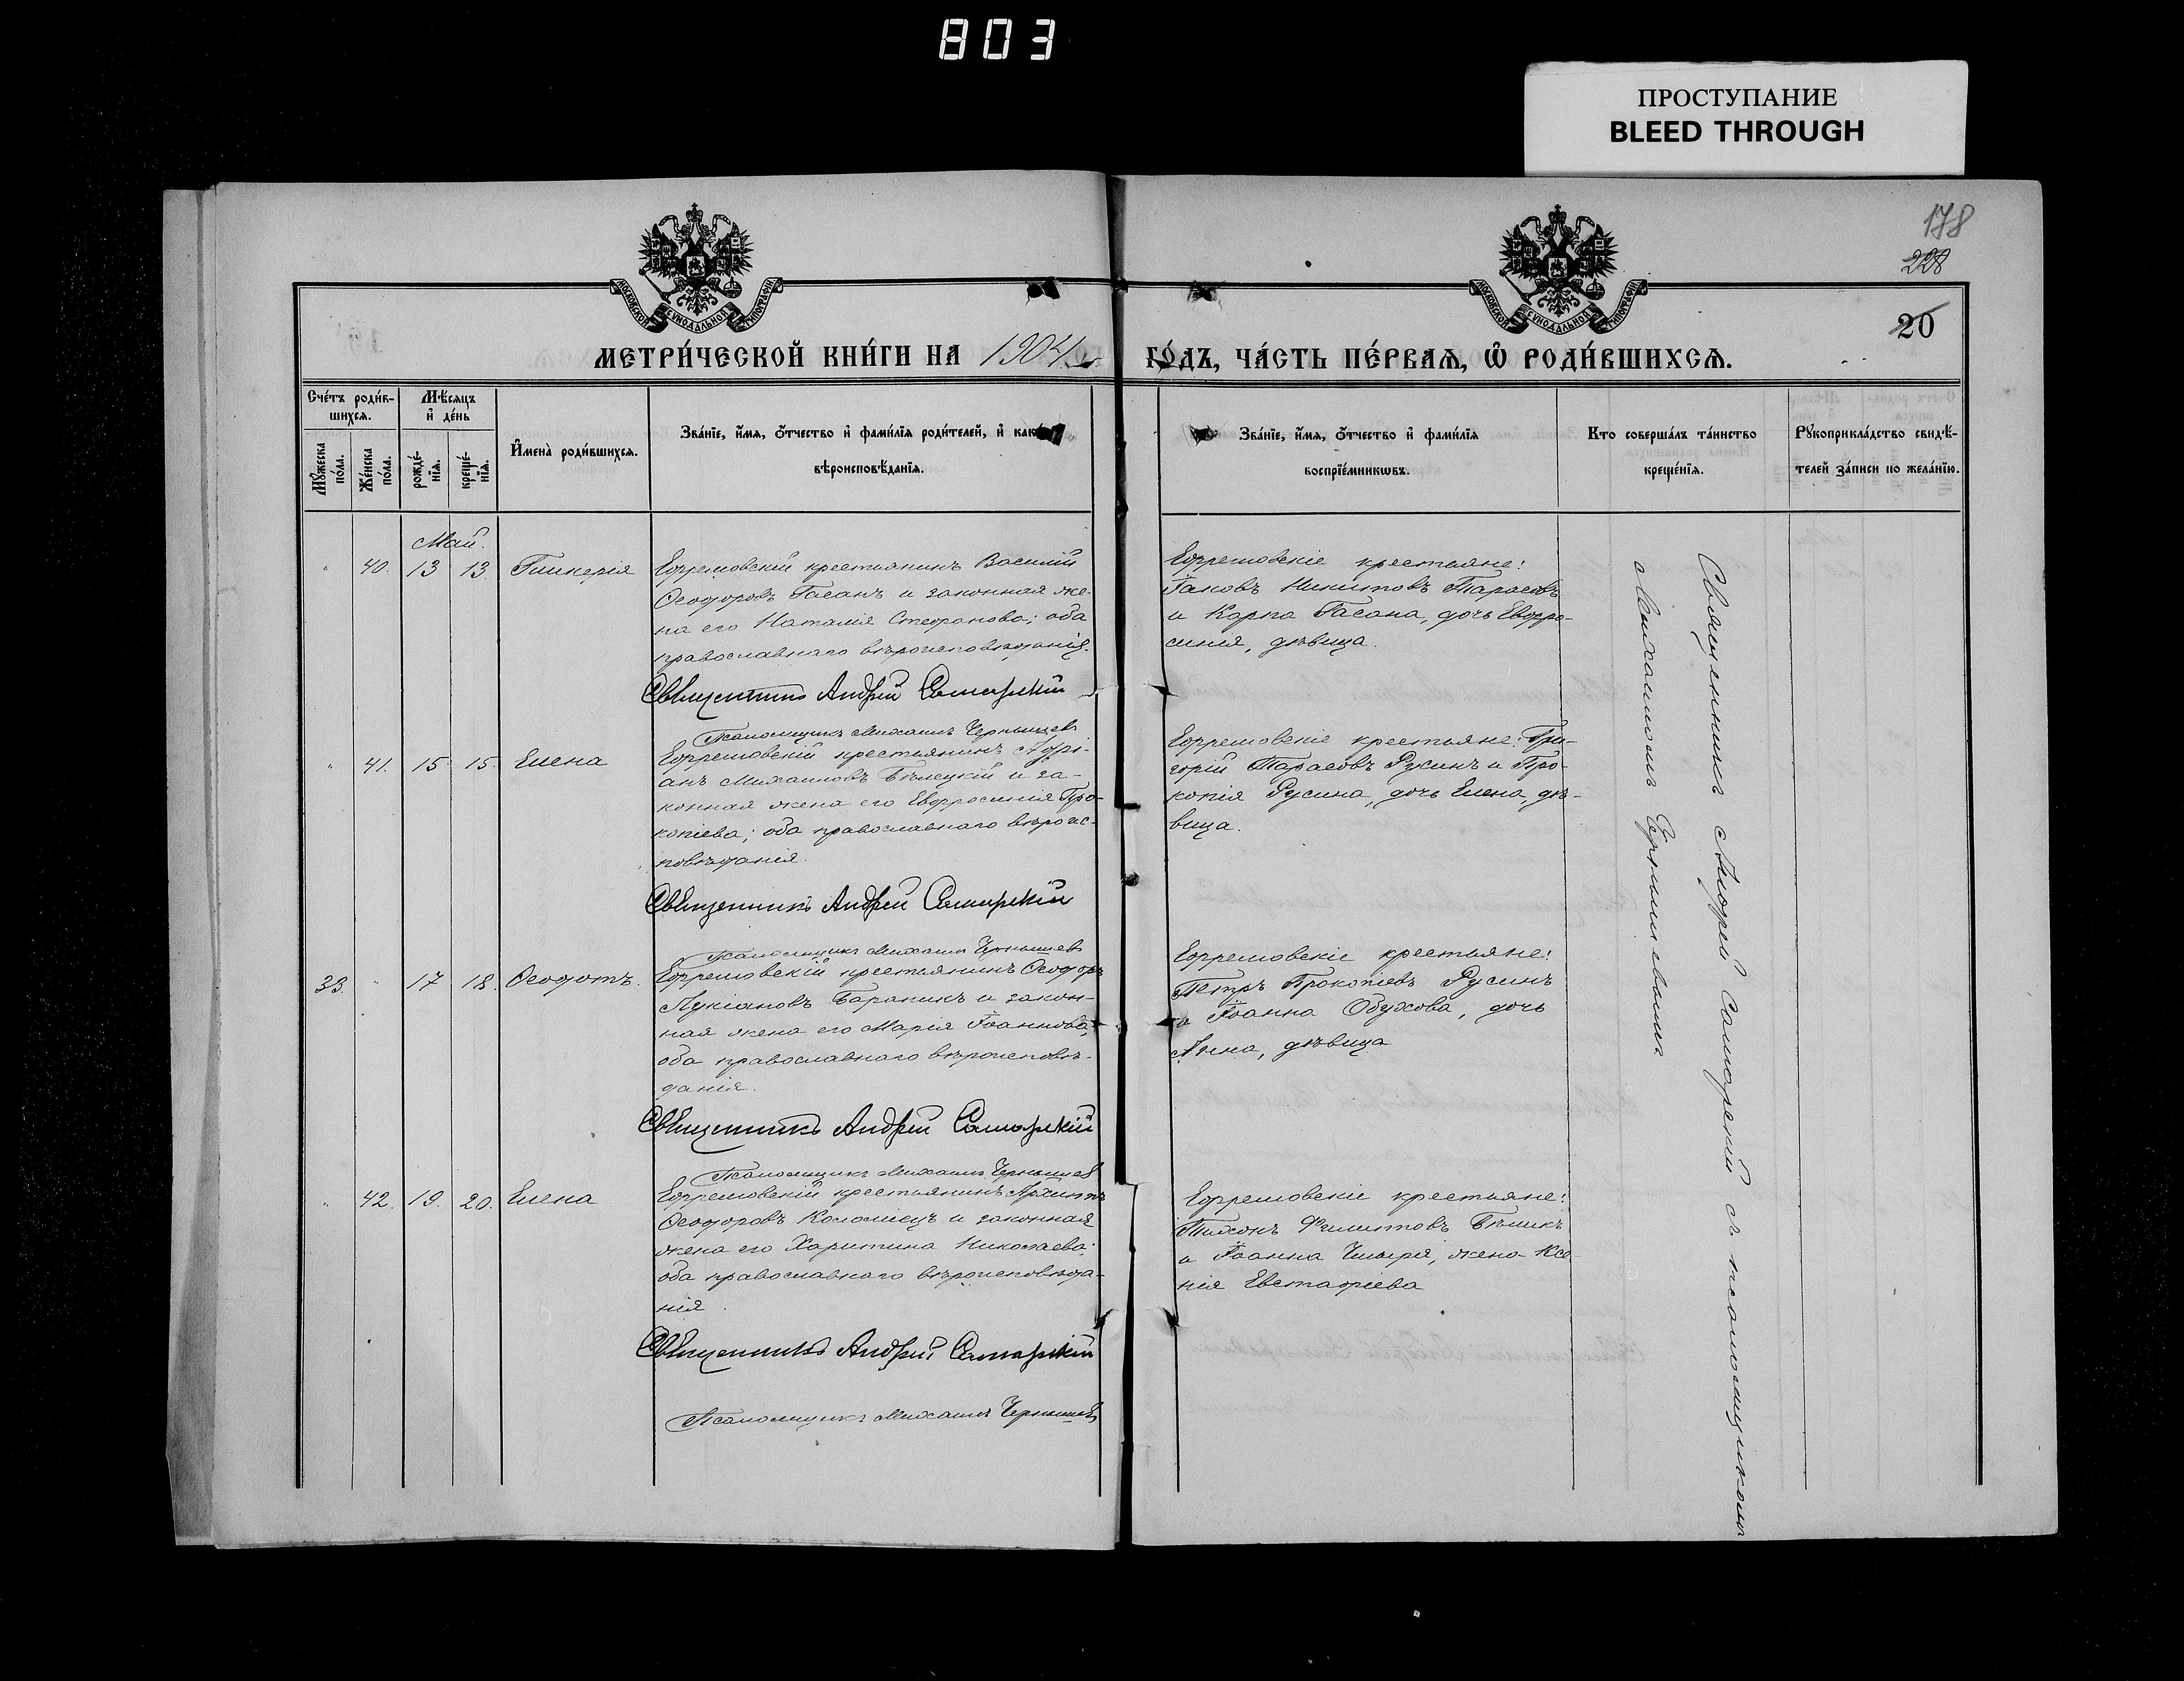 803
ПРОСТУПАНИЕ
BLEED THROUGH
178
228
20
МОСКОВСКОЙ СѴНОДАЛЬНОЙ ТИПОГРАФІИ
МОСКОВСКОЙ СѴНОДАЛЬНОЙ ТИПОГРАФІИ
МЕТРИ́ЧЕСКОЙ КНИ́ГИ НА 1904
ГО́ДЪ, ЧА́СТЬ ПЕ́РВАЯ, Ѡ҆ РОДИ́ВШИХСѦ.
Сче́тъ роди́в-
шихсѧ.
Мѣ́сѧцъ
и҆ де́нь
Мꙋ́жеска
по́ла.
Же́нска
по́ла.
рожде́-
нїѧ.
креще́-
нїѧ.
И҆мена̀ роди́вшихсѧ.
Зва́нїе, и҆́мѧ, ѻ҆́тчество и҆ фами́лїѧ роди́телей, и҆ како
вѣроисповѣ́данїѧ.
Зва́нїе, и҆́мѧ, ѻ҆́тчество и҆ фами́лїѧ
воспрїе́мникѡвъ.
Кто соверша́лъ та́инство
креще́нїѧ.
Рꙋкоприкла́дство свидѣ́-
телей за́писи по жела́нїю.
Май.
" 40. 13 13. Гликерія
Ефремовскій крестьянинъ Василій
Ѳеодоровъ Гасанъ и законная же-
на его Наталія Стефанова; оба
православнаго вѣроисповѣданія.
Священникъ Андрей Самарскій
Псаломщикъ Михаилъ Чернышев
Ефремовскіе крестьяне:
Іаковъ Никитовъ Тарасовъ
и Карпа Гасана, дочь Евфро-
синія, дѣвица.
" 41. 15 15. Елена
Ефремовскій крестьянинъ Адрі-
анъ Михаиловъ Бѣлецкій и за-
конная жена его Евфросинія Про-
копіева; оба православнаго вѣроис-
повѣданія.
Священникъ Андрей Самарскій
Псаломщикъ Михаилъ Чернышев
Ефремовскіе крестьяне: Гри-
горій Тарасовъ Русинъ и Про-
копія Русина, дочь Елена, дѣ-
вица.
33. " 17 18. Ѳеодотъ.
Ефремовскій крестьянинъ Ѳеодоръ
Лукіановъ Баранникъ и закон-
ная жена его Марія Іоаннова;
оба православнаго вѣроисповѣ-
данія.
Священникъ Андрей Самарскій
Псаломщикъ Михаилъ Чернышев
Ефремовскіе крестьяне:
Петръ Прокопіевъ Русинъ
и Іоанна Обухова, дочь
Анна, дѣвица
" 42. 19. 20. Елена
Ефремовскій крестьянинъ Архиппъ
Ѳеодоровъ Коломіецъ и законная
жена его Харитина Николаева;
оба православнаго вѣроисповѣда-
нія.
Священникъ Андрей Самарскій
Псаломщикъ Михаилъ Чернышев
Ефремовскіе крестьяне:
Тихонъ Филиповъ Бѣликъ
и Іоанна жена Ксе-
нія Евстафіева
Священникъ Андрей Самарскій съ псаломщикомъ
Михаиломъ Чернышевымъ